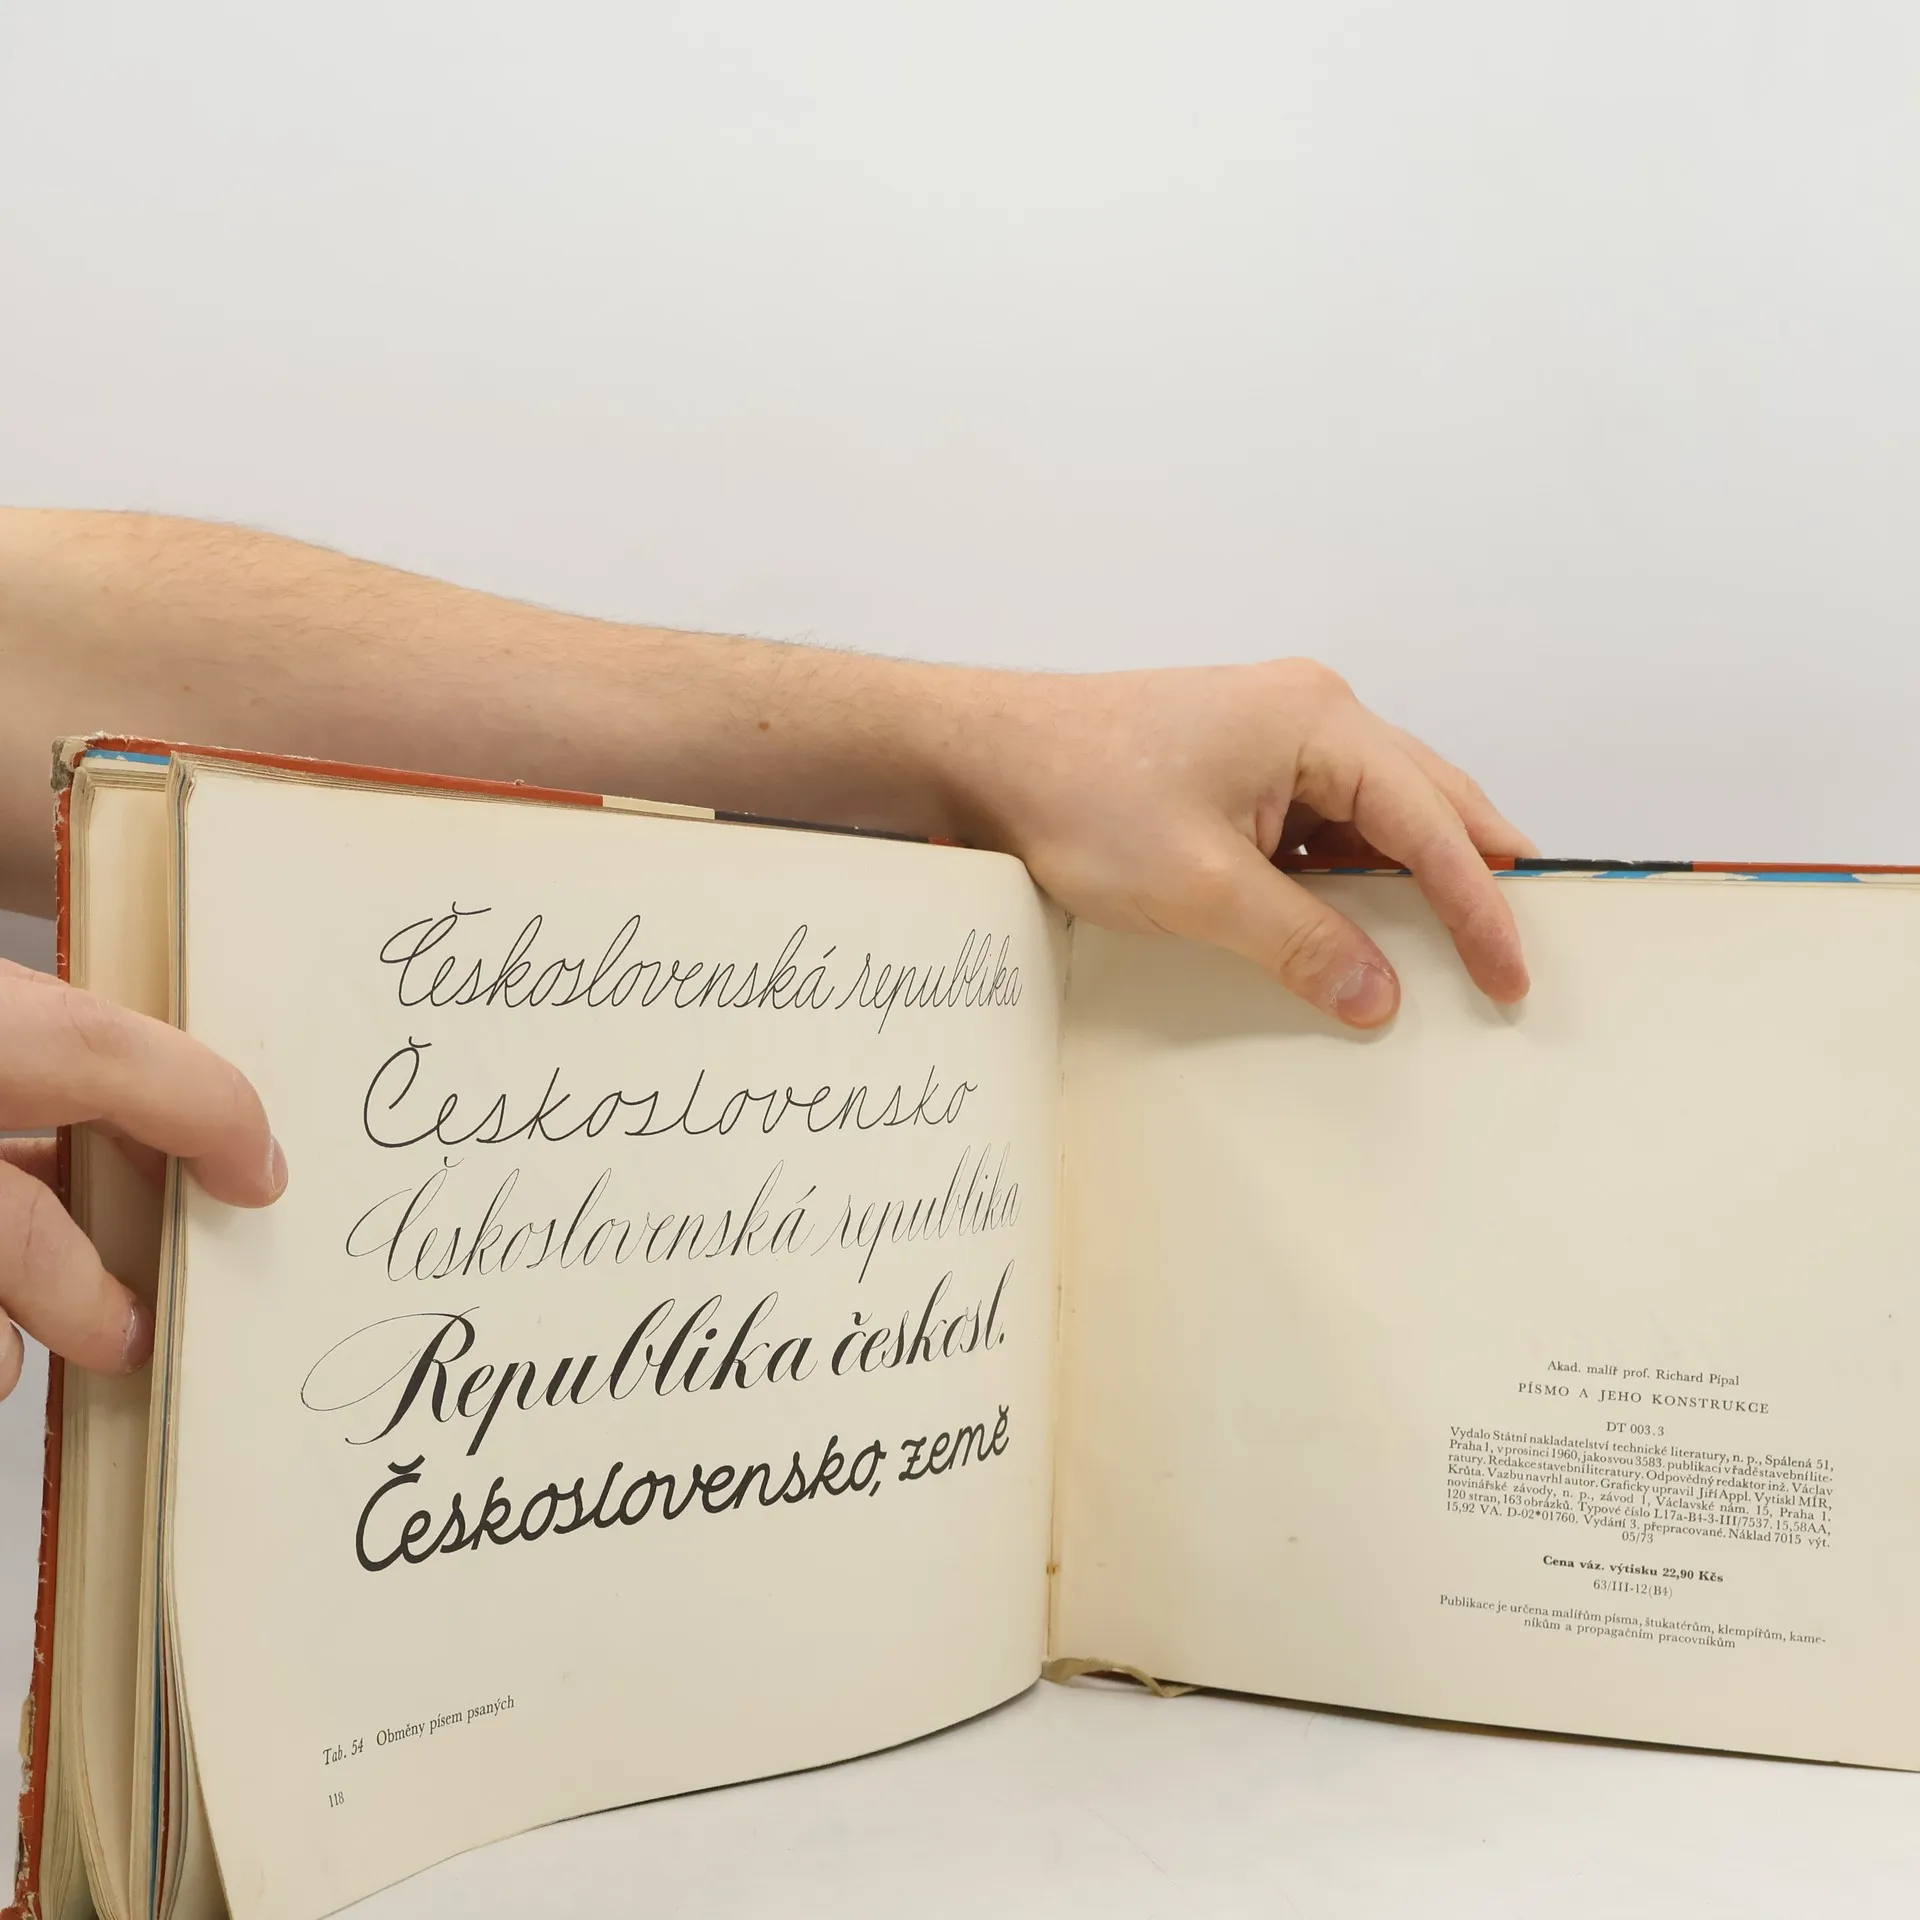 Československá republika
Československo
Československá republika
Republika českosl.
Československo, země
Tab. 54 Obměny písem psaných
118
Akad. malíř prof. Richard Pípal
PÍSMO A JEHO KONSTRUKCE
DT 003.3
Vydalo Státní nakladatelství technické literatury, n. p., Spálená 51,
Praha 1, v prosinci 1960, jako svou 3583. publikaci v řadě stavební lite-
ratury. Redakce stavební literatury. Odpovědný redaktor inž. Václav
Krůta. Vazbu navrhl autor. Graficky upravil Jiří Appl. Vytiskl MÍR,
novinářské závody, n. p., závod 1, Václavské nám. 15, Praha 1.
120 stran, 163 obrázků. Typové číslo L17a-B4-3-III/7537. 15,58 AA,
15,92 VA. D-02*01760. Vydání 3. přepracované. Náklad 7015 výt.
05/73
Cena váz. výtisku 22,90 Kčs
63/III-12 (B4)
Publikace je určena malířům písma, štukatérům, klempířům, kame-
níkům a propagačním pracovníkům